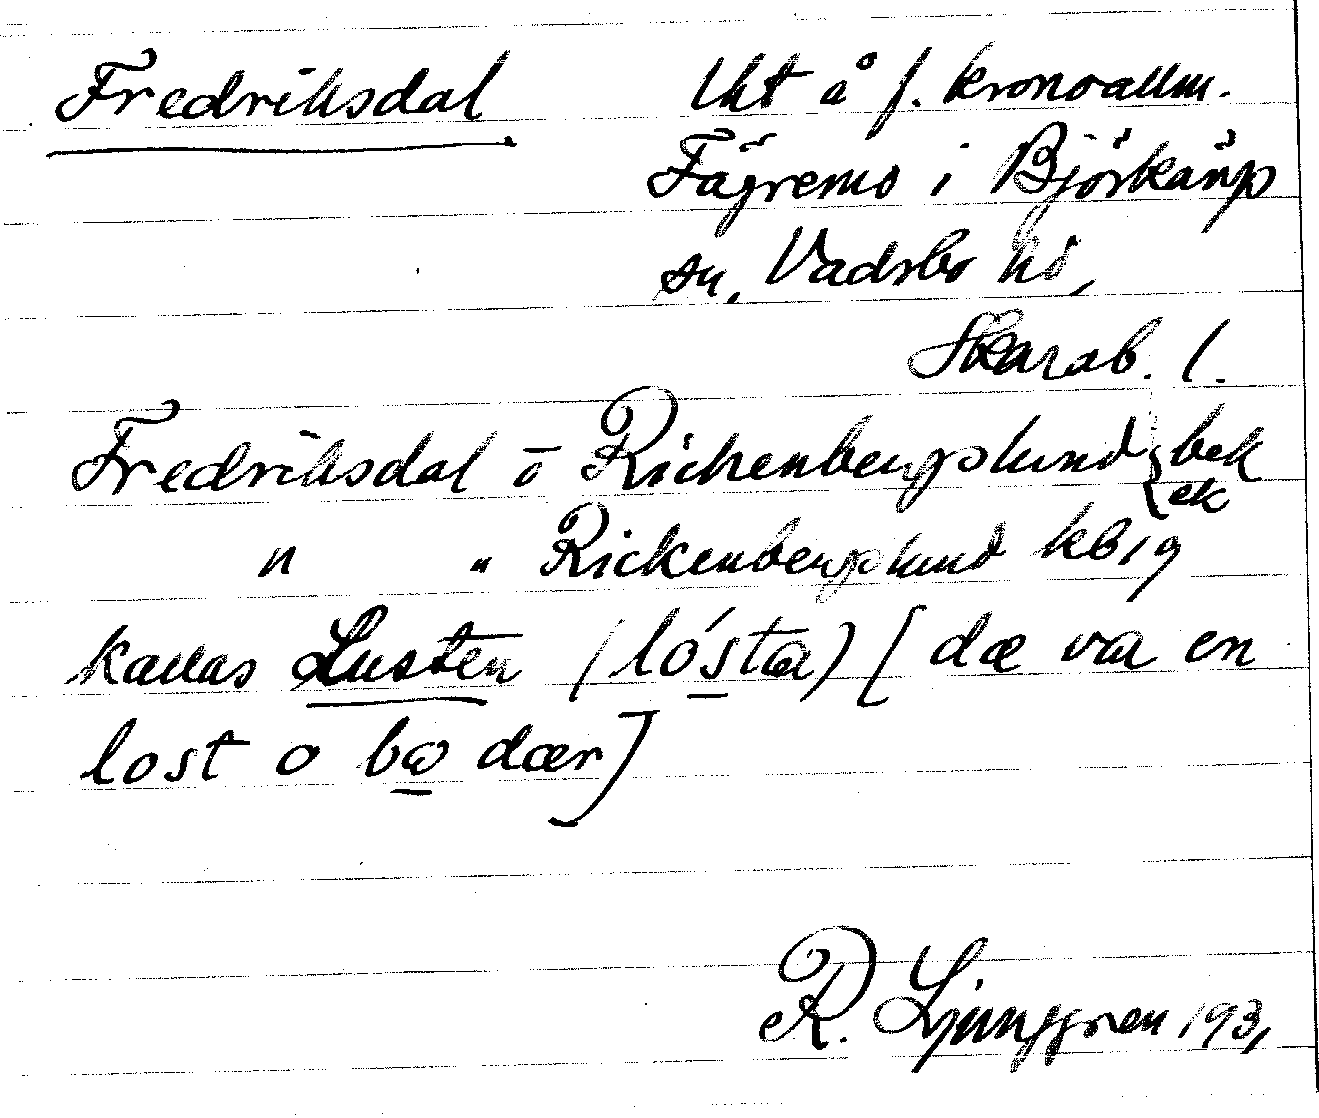 Fredriksdal
Uht å f. kronoallm.
Fägremo i Björkäng
sn, Vadsbo hd,
Skarab. l.
Fredriksdal o Rickenbergslund { bek
ek
" " Rickenbergslund kb 19
kallas Lusten (lósta) [dæ va en
lost o bo dær]
R. Ljunggren 1931